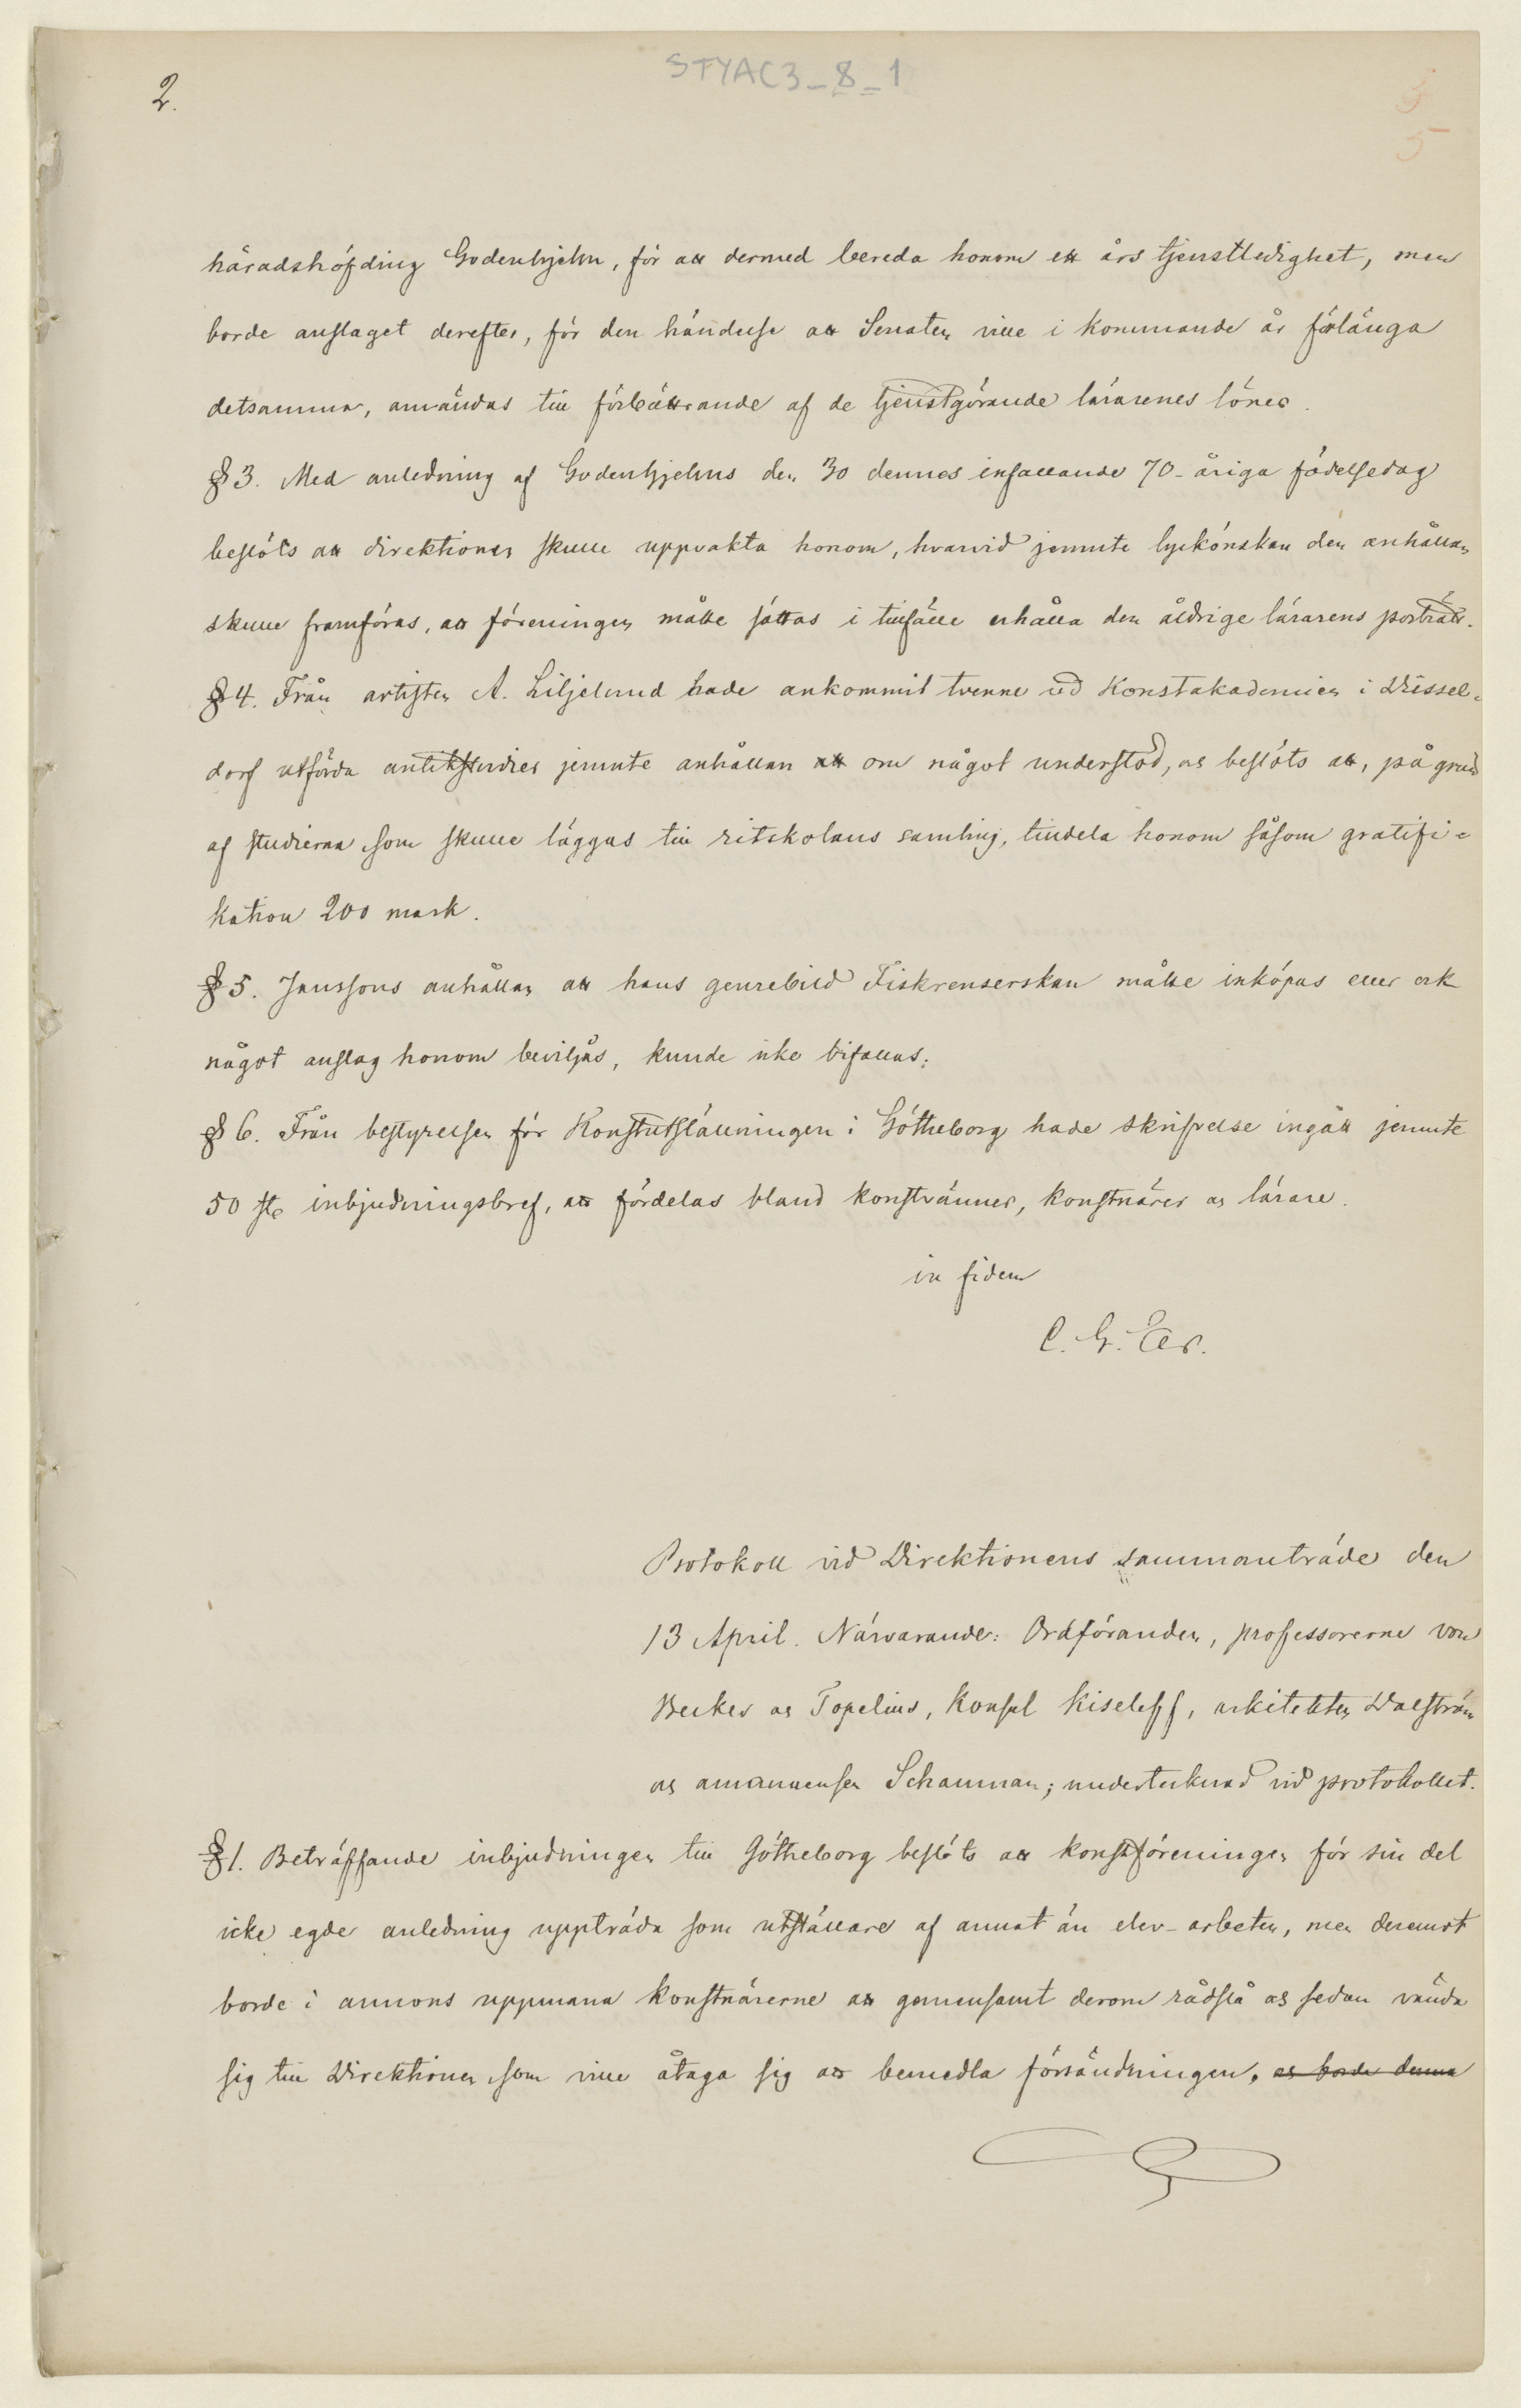 STYAC3_8_1
2.
5
häradshöfding Godenhjelm, för att dermed bereda honom ett års tjenstledighet, men
borde anslaget derefter, för den händelse att Senaten ville i kommande år förlänga
detsamma, användas till förbättrande af de tjenstgörande lärarenes löner.
§ 3. Med anledning af Godenhjelms den 30 dennes infallande 70-åriga födelsedag
beslöts att direktionen skulle uppvakta honom, hvarvid jemnte lyckönskan den anhållan
skulle framföras, att föreningen måtte sättas i tillfälle erhålla den åldrige lärarens porträtt.
§ 4. Från artisten A. Liljelund hade ankommit tvenne vid Konstakademien i Düssel-
dorf utförda antikstudier jemnte anhållan att om något understöd, och beslöts att, på grund
af studierna som skulle läggas till ritskolans samling, tilldela honom såsom gratifi-
kation 200 mark.
§ 5. Janssons anhållan att hans genrebild Fiskrenserskan måtte inköpas eller ock
något anslag honom beviljas, kunde icke bifallas.
§ 6. Från bestyrelsen för Konstutställningen i Götheborg hade skrifvelse ingått jemnte
50 st. inbjudningsbref, att fördelas bland konstvänner, konstnärer och lärare.
in fidem
C. G. Est.
Protokoll vid Direktionens sammanträde den
13 April. Närvarande: Ordföranden, professorerne von
Becker och Topelius, Konsul Kiseleff, arkitekten Dalström
och amanuensen Schauman; undertecknad vid protokollet.
§ 1. Beträffande inbjudningen till Götheborg beslöts att konstföreningen för sin del
icke egde anledning uppträda som utställare af annat än elev-arbeten, men deremot
borde i annons uppmana konstnärerne att gemensamt derom rådslå och sedan vända
sig till Direktionen som ville åtaga sig att bemedla försändningen, och borde denna